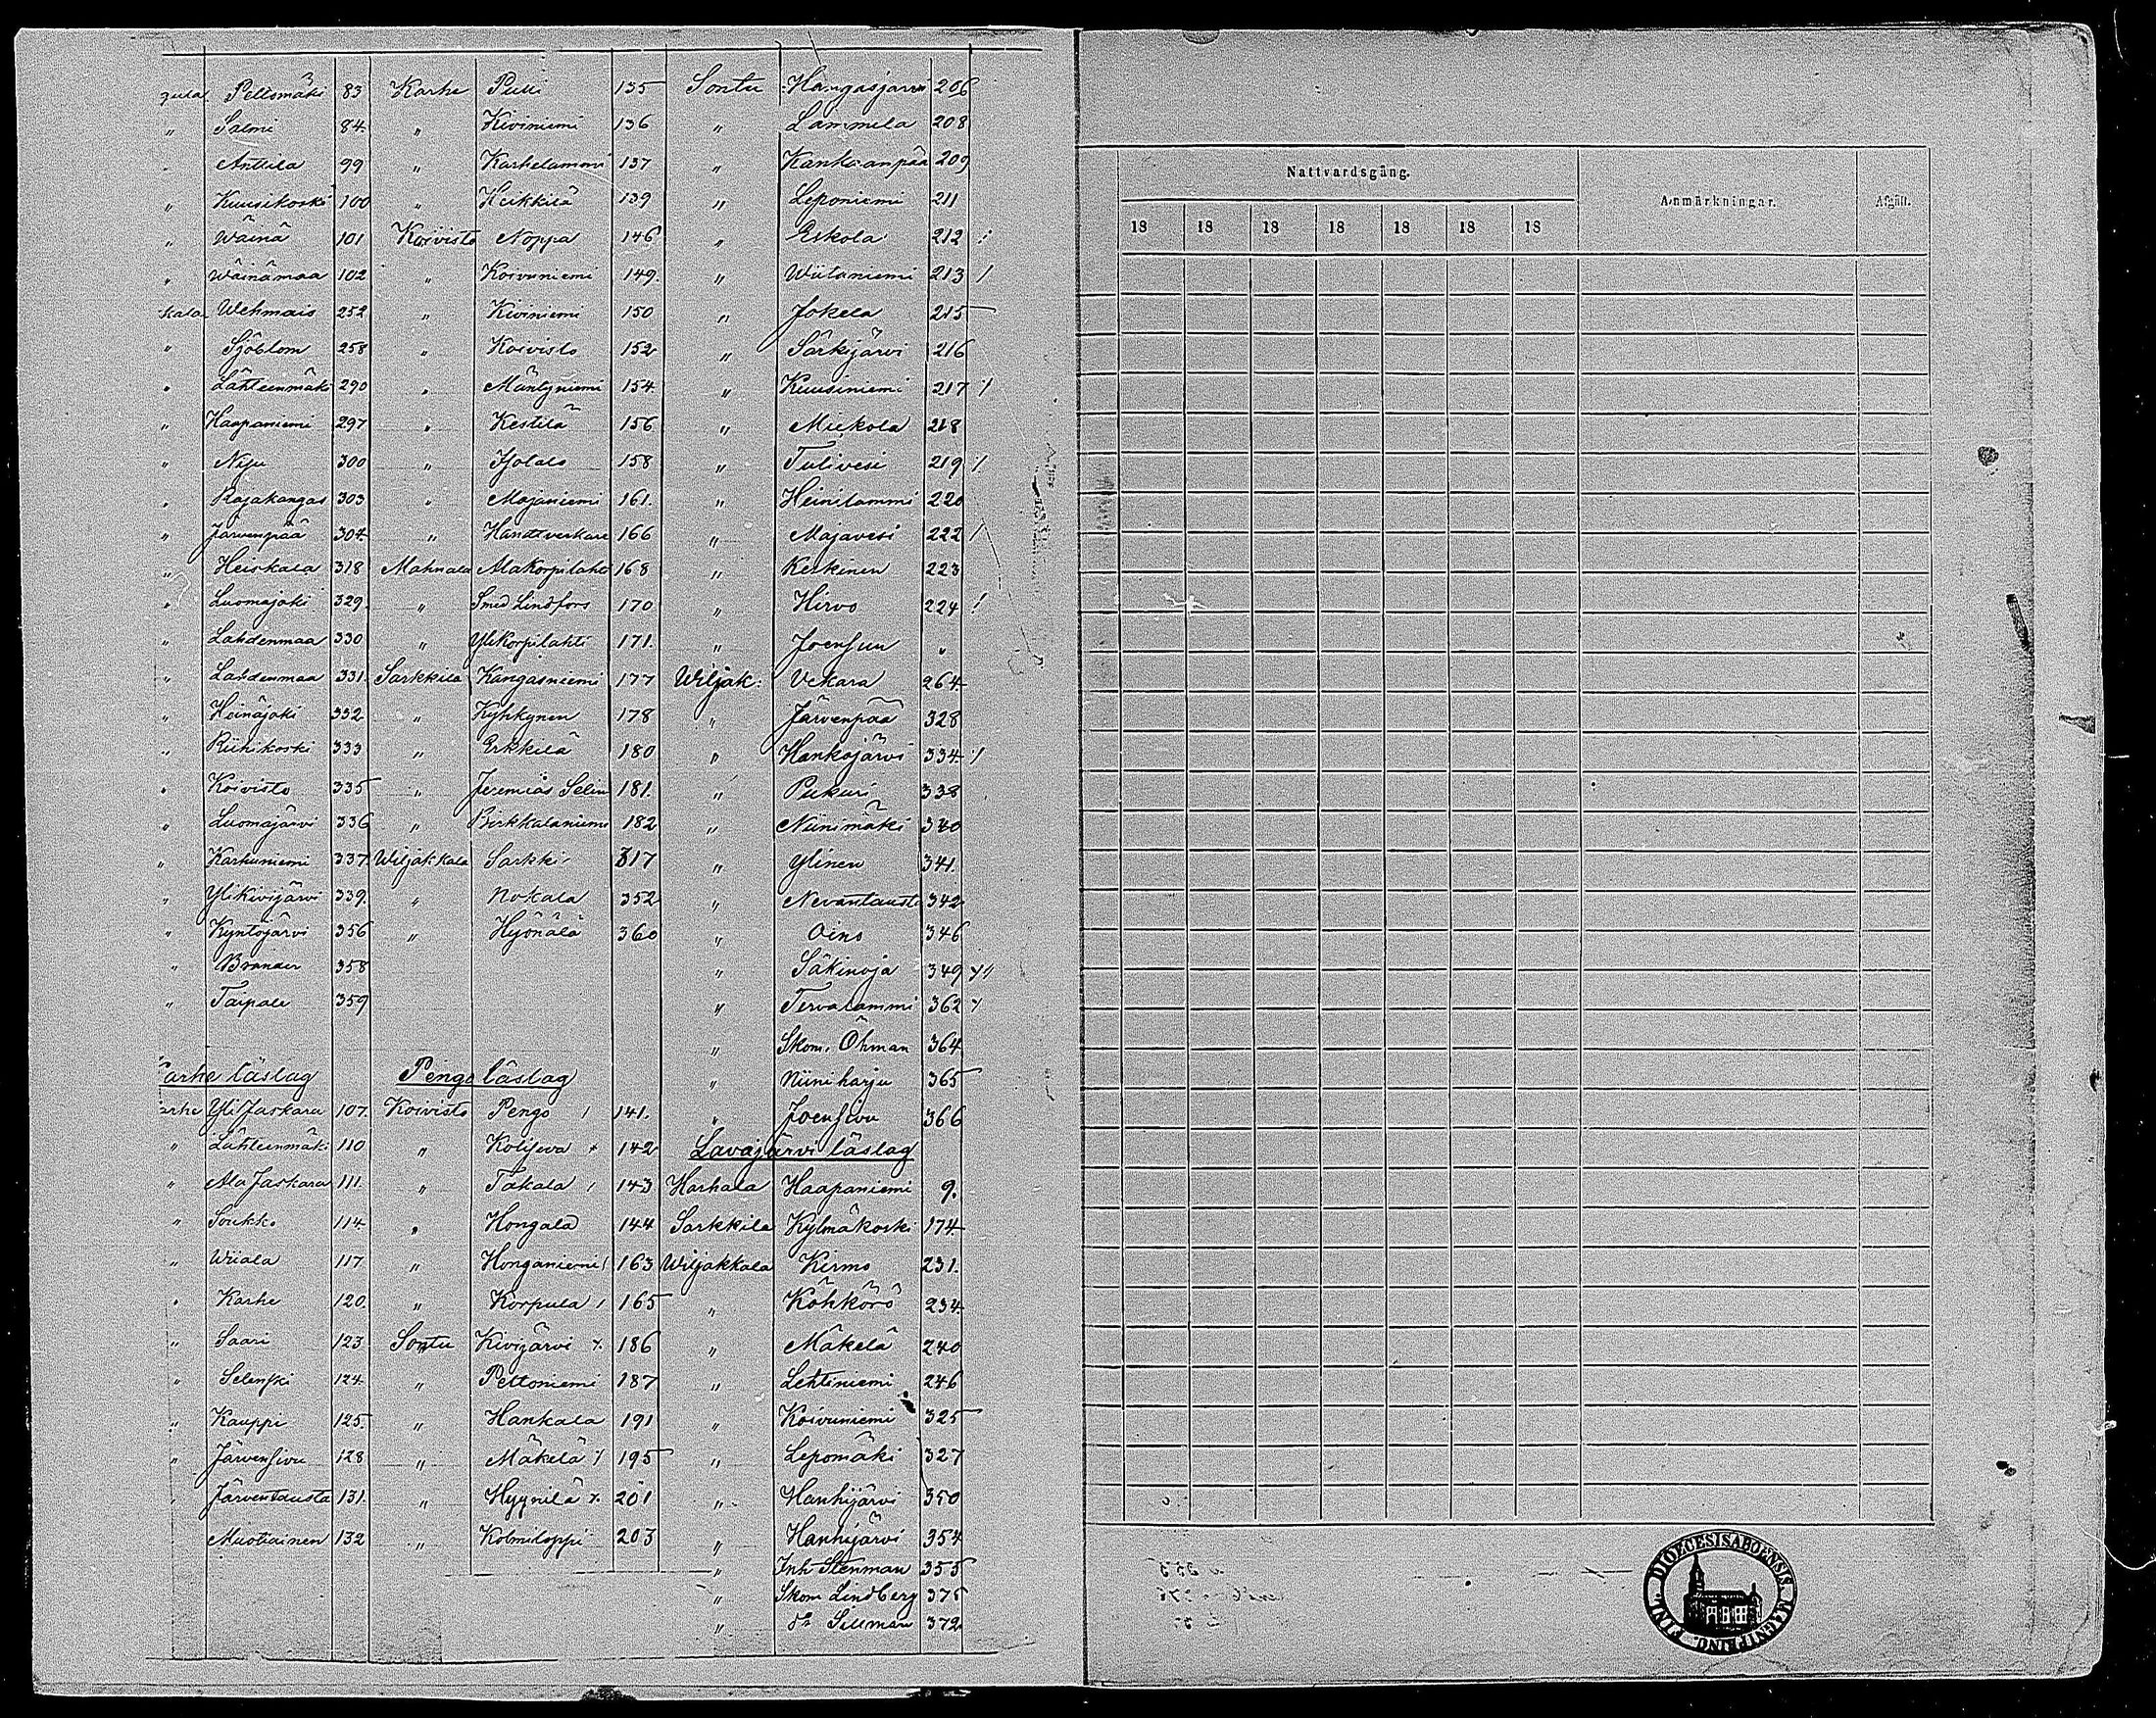 gula Peltomäki 83
" Salmi 84
Anttila 99
" Kuusikoski 100
" Wäinä 101
" Wäinämaa 102
kala Wehmais 252
" Sjöblom 258
" Lähteenmäki 290
" Haapaniemi 297
" Niju 300
" Rajakangas 303
" Järvenpää 304
" Heiskala 318
" Luomajoki 329.
" Lahdenmaa 330
" Lahdenmaa 331.
" Heinäjoki 332
" Riihikoski 333
" Koivisto 335
" Luomajärvi 336
" Karhuniemi 337
" Ylikivijärvi 339.
" Kyntöjärvi 356
" Brander 358
" Taipale 359
Karhe läslag
Karhe YliJaskara 107.
" Lähteenmäki 110
" AlaJaskara 111.
" Soukko 114
" Wiiala 117
" Karhe 120.
" Saari 123
" Selenski 124
" Kauppi 125.
" Järvensivu 128
" Järventausta 131.
Muotiainen 132
Karhe Pulli 135
" Kiviniemi 136
" Karhelammi 137
" Heikkilä 139
Koivisto Noppa 146
" Koivuniemi 149.
" Kiviniemi 150
" Koivisto 152
" Mäntyniemi 154
" Kestilä 156
" 158
" Majaniemi 161.
" Handtverkare 166
Mahnala Alakorpilahti 168
" Smed Lindfors 170
" Ylikorpilahti 171.
Sarkkila Kangasniemi 177
" Kyhkynen 178
" Erkkilä 180
" Jeremias Selin 181.
" Pirkkalaniemi 182
Wiljakkala Sarkki 317
" Nokala 352
" Hyönälä 360
Pengo läslag
Koivisto Pengo / 141.
" Kolijeva + 142
" Takala / 143
" Hongala 144
" Honganiemi / 163
" Korpula / 165
Sontu Kivijärvi 186
" Peltoniemi 187
" Hankala 191
" Mäkelä 195
" Hyynilä 201
" Kolmiloppi 203
Sontu Hangasjärvi 206
" Lammila 208
" Kankaanpää 209
" Leponiemi 211
" Eskola 212
" Wiitaniemi 213 /
" Jokela 215
" Särkijärvi 216
" Kuusiniemi 217
" Mickola 218
" Tulivesi 219
" Heinilammi 220
" Majavesi 222 /
" Keskinen 223
" Hirvo 224 /
" Joensuu "
Wiljak: Vekara 264
" Järvenpää 328
" Hankajärvi 334
" Pukuri 338
" Niinimäki 340
" Ylinen 341.
" Nevantausta 342
" Oino 346
" Säkinoja 349
" Tervalammi 362
" Skom. Öhman 364
" Niiniharju 365
" Joensivu 366
Lavajärvi läslag
Harhala Haapaniemi 9.
Sarkkila Kylmäkoski 174
Wiljakkala Kirmo 231.
" Köhkörö 234
" Mäkelä 240
" Lehtiniemi 246
" Koivuniemi 325
" Lepomäki 327
" Hanhijärvi 350
" Hanhijärvi 354
" Inh Stenman 355
" Skom Lindberg 375
" do Sillman 372
Nattvardsgång.
Anmärkningar.
Afgått.
18 18 18 18 18 18 18
DIOECESIS ABOENSIS MAGNI PRINC. FINL.